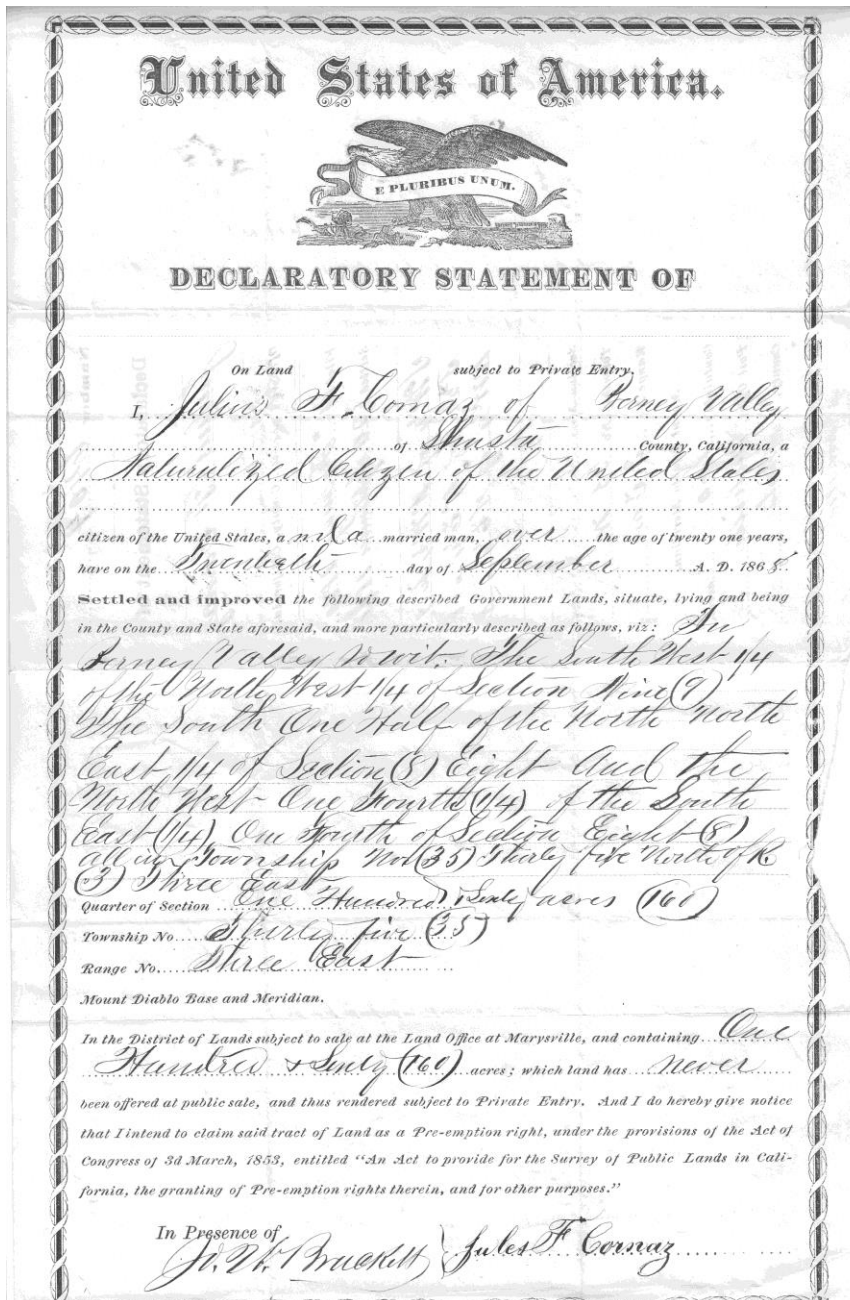 United States of America.
E PLURIBUS UNUM.
DECLARATORY STATEMENT OF
On Land subject to Private Entry,
I, Julius F. Cornaz of Berney Valley
of Shasta County, California, a
Naturalized Citizen of the United States
citizen of the United States, a married man, over the age of twenty one years,
have on the Twentieth day of September A. D. 1868.
Settled and improved the following described Government Lands, situate, lying and being
in the County and State aforesaid, and more particularly described as follows, viz: In
Berney Valley towit: The South West 1/4
of the North West 1/4 of Section Nine (9)
The South One Half of the North North
East 1/4 of Section (8) Eight And the
North West One Fourth (1/4) of the South
East (1/4) One Fourth of Section Eight (8)
all in Township No (35) Thirty five North of R.
(3) Three East
Quarter of Section One Hundred & Sixty acres (160)
Township No. Thirty five (35)
Range No. Three East
Mount Diablo Base and Meridian.
In the District of Lands subject to sale at the Land Office at Marysville, and containing One
Hundred & Sixty (160) acres; which land has never
been offered at public sale, and thus rendered subject to Private Entry. And I do hereby give notice
that I intend to claim said tract of Land as a Pre-emption right, under the provisions of the Act of
Congress of 3d March, 1853, entitled "An Act to provide for the Survey of Public Lands in Cali-
fornia, the granting of Pre-emption rights therein, and for other purposes."
In Presence of
Brackett Jules F Cornaz